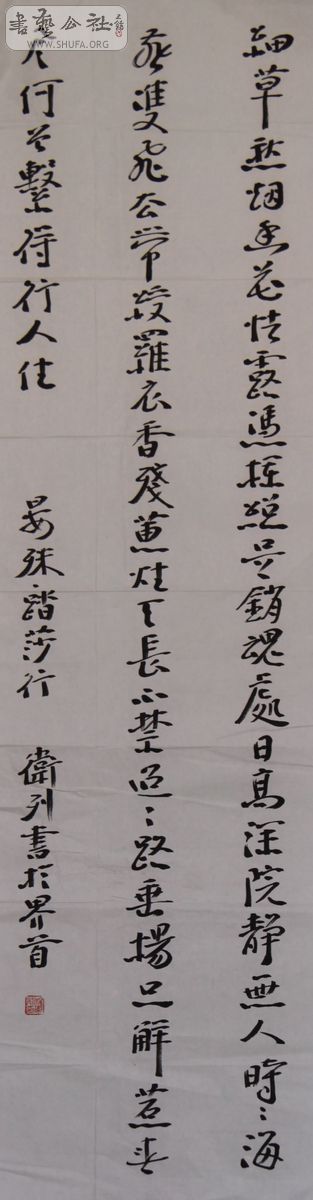 細草愁烟幽花怯露憑欄總是銷魂處日高深院靜無人時〻海
燕雙飛去帶緩羅衣香殘蕙炷天長不禁迢〻路垂楊只解惹春
風何曾繫得行人住 晏殊踏莎行 衛列書於界首
書藝公社
WWW.SHUFA.ORG